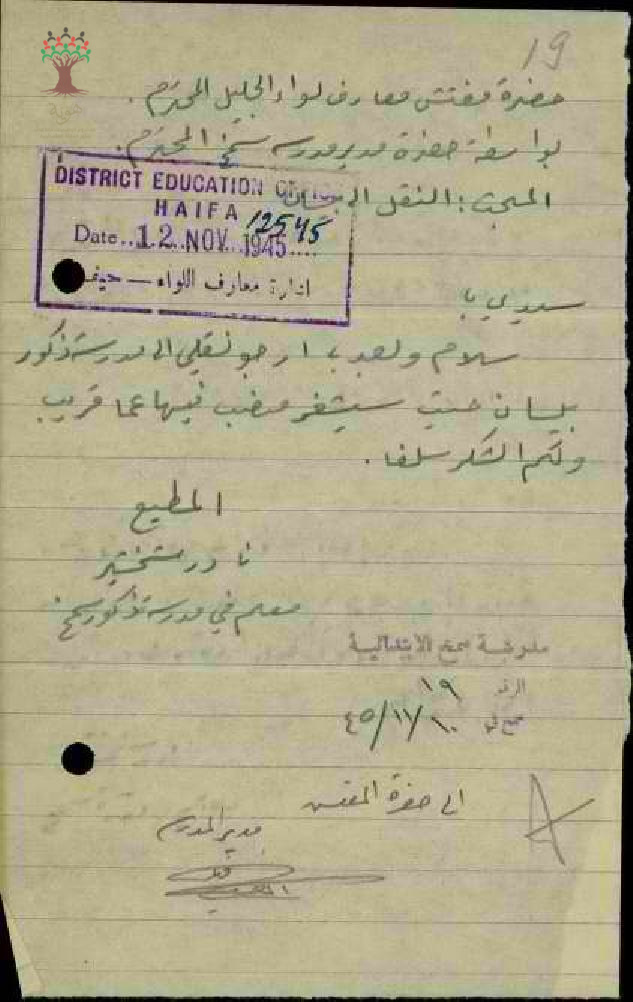 19
حضرة مفتش معارف لواء الجليل المحترم .
بواسطة حضرة مدير مدرسة سمخ المحترم .
المبحث : النقل الى بيسان
DISTRICT EDUCATION OFFICE
HAIFA
12545
Date..12.NOV.1945....
ادارة معارف اللواء — حيفا
سيدي
سلام وبعد ارجو نقلي الى مدرسة ذكور
بيسان حيث سيشغر منصب فيها عما قريب
ولكم الشكر سلفا .
المطيع
نادر
معلم في مدرسة ذكور سمخ
مدرسة سمخ الابتدائية
الرقم ١٩
سمخ في ١٠/١١/٤٥
الى حضرة المفتش
مدير المدرسة